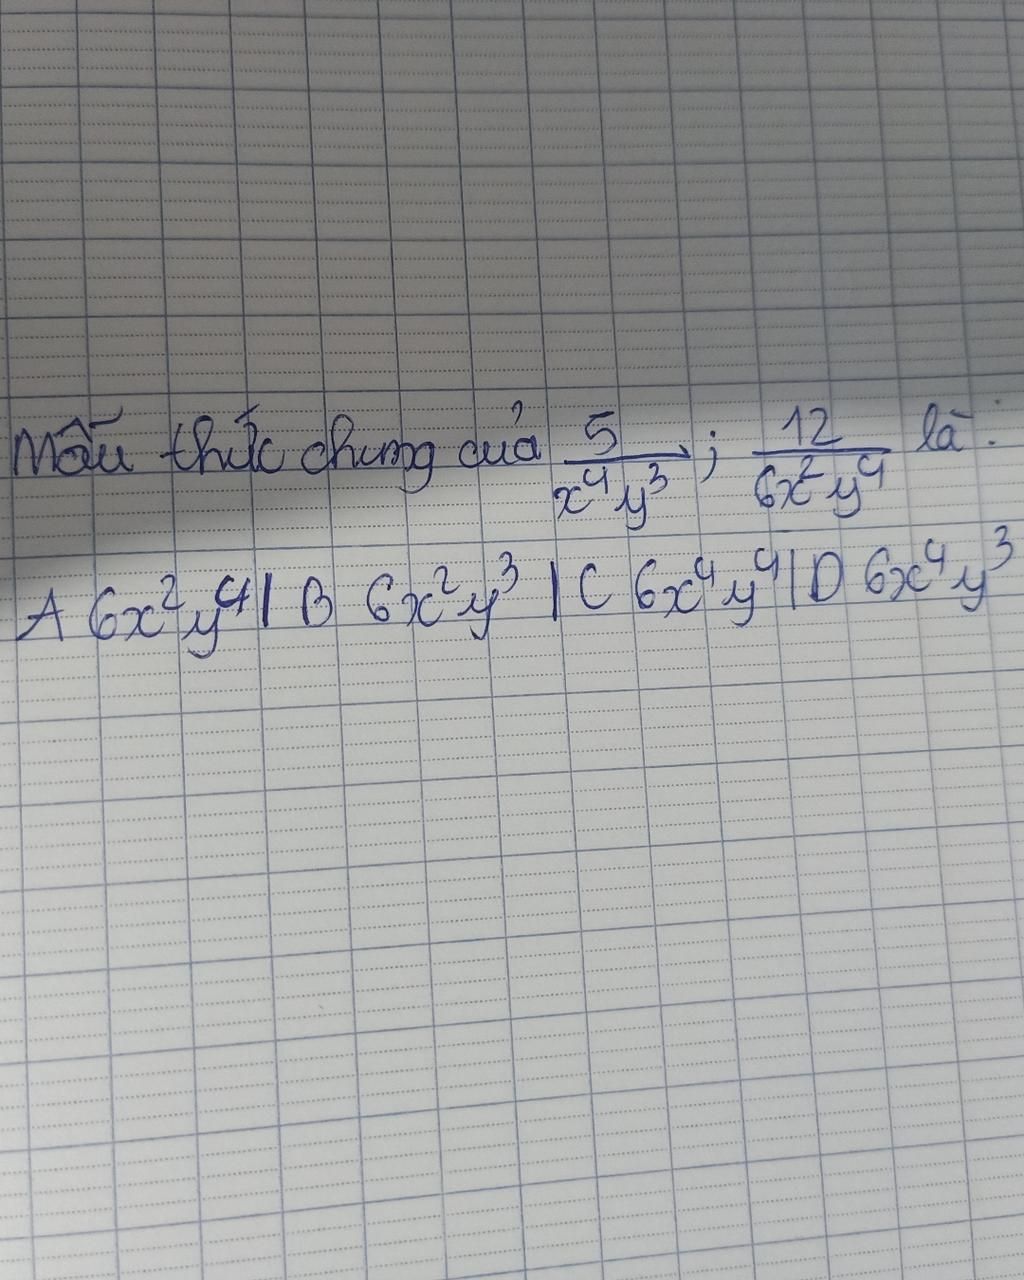 Mẫu thức chung của 5/x⁴y³ ; 12/6x²y⁴ là:
A 6x²y⁴ | B 6x²y³ | C 6x⁴y⁴ | D 6x⁴y³